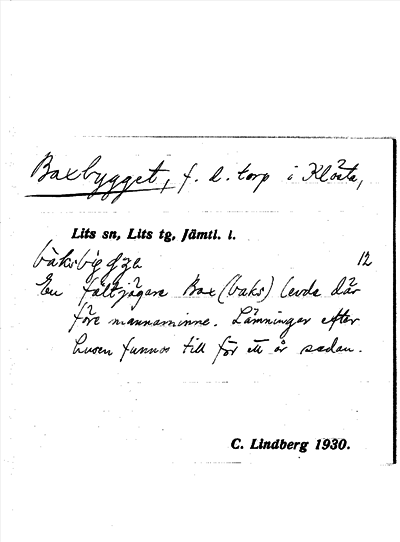 Baxbygget, f. d. torp i Klösta,
Lits sn, Lits tg, Jämtl. l.
12
En fältjägare Bax (baks) levde där
före mannaminne. Lämningar efter
husen funnos till för ett år sedan.
C. Lindberg 1930.